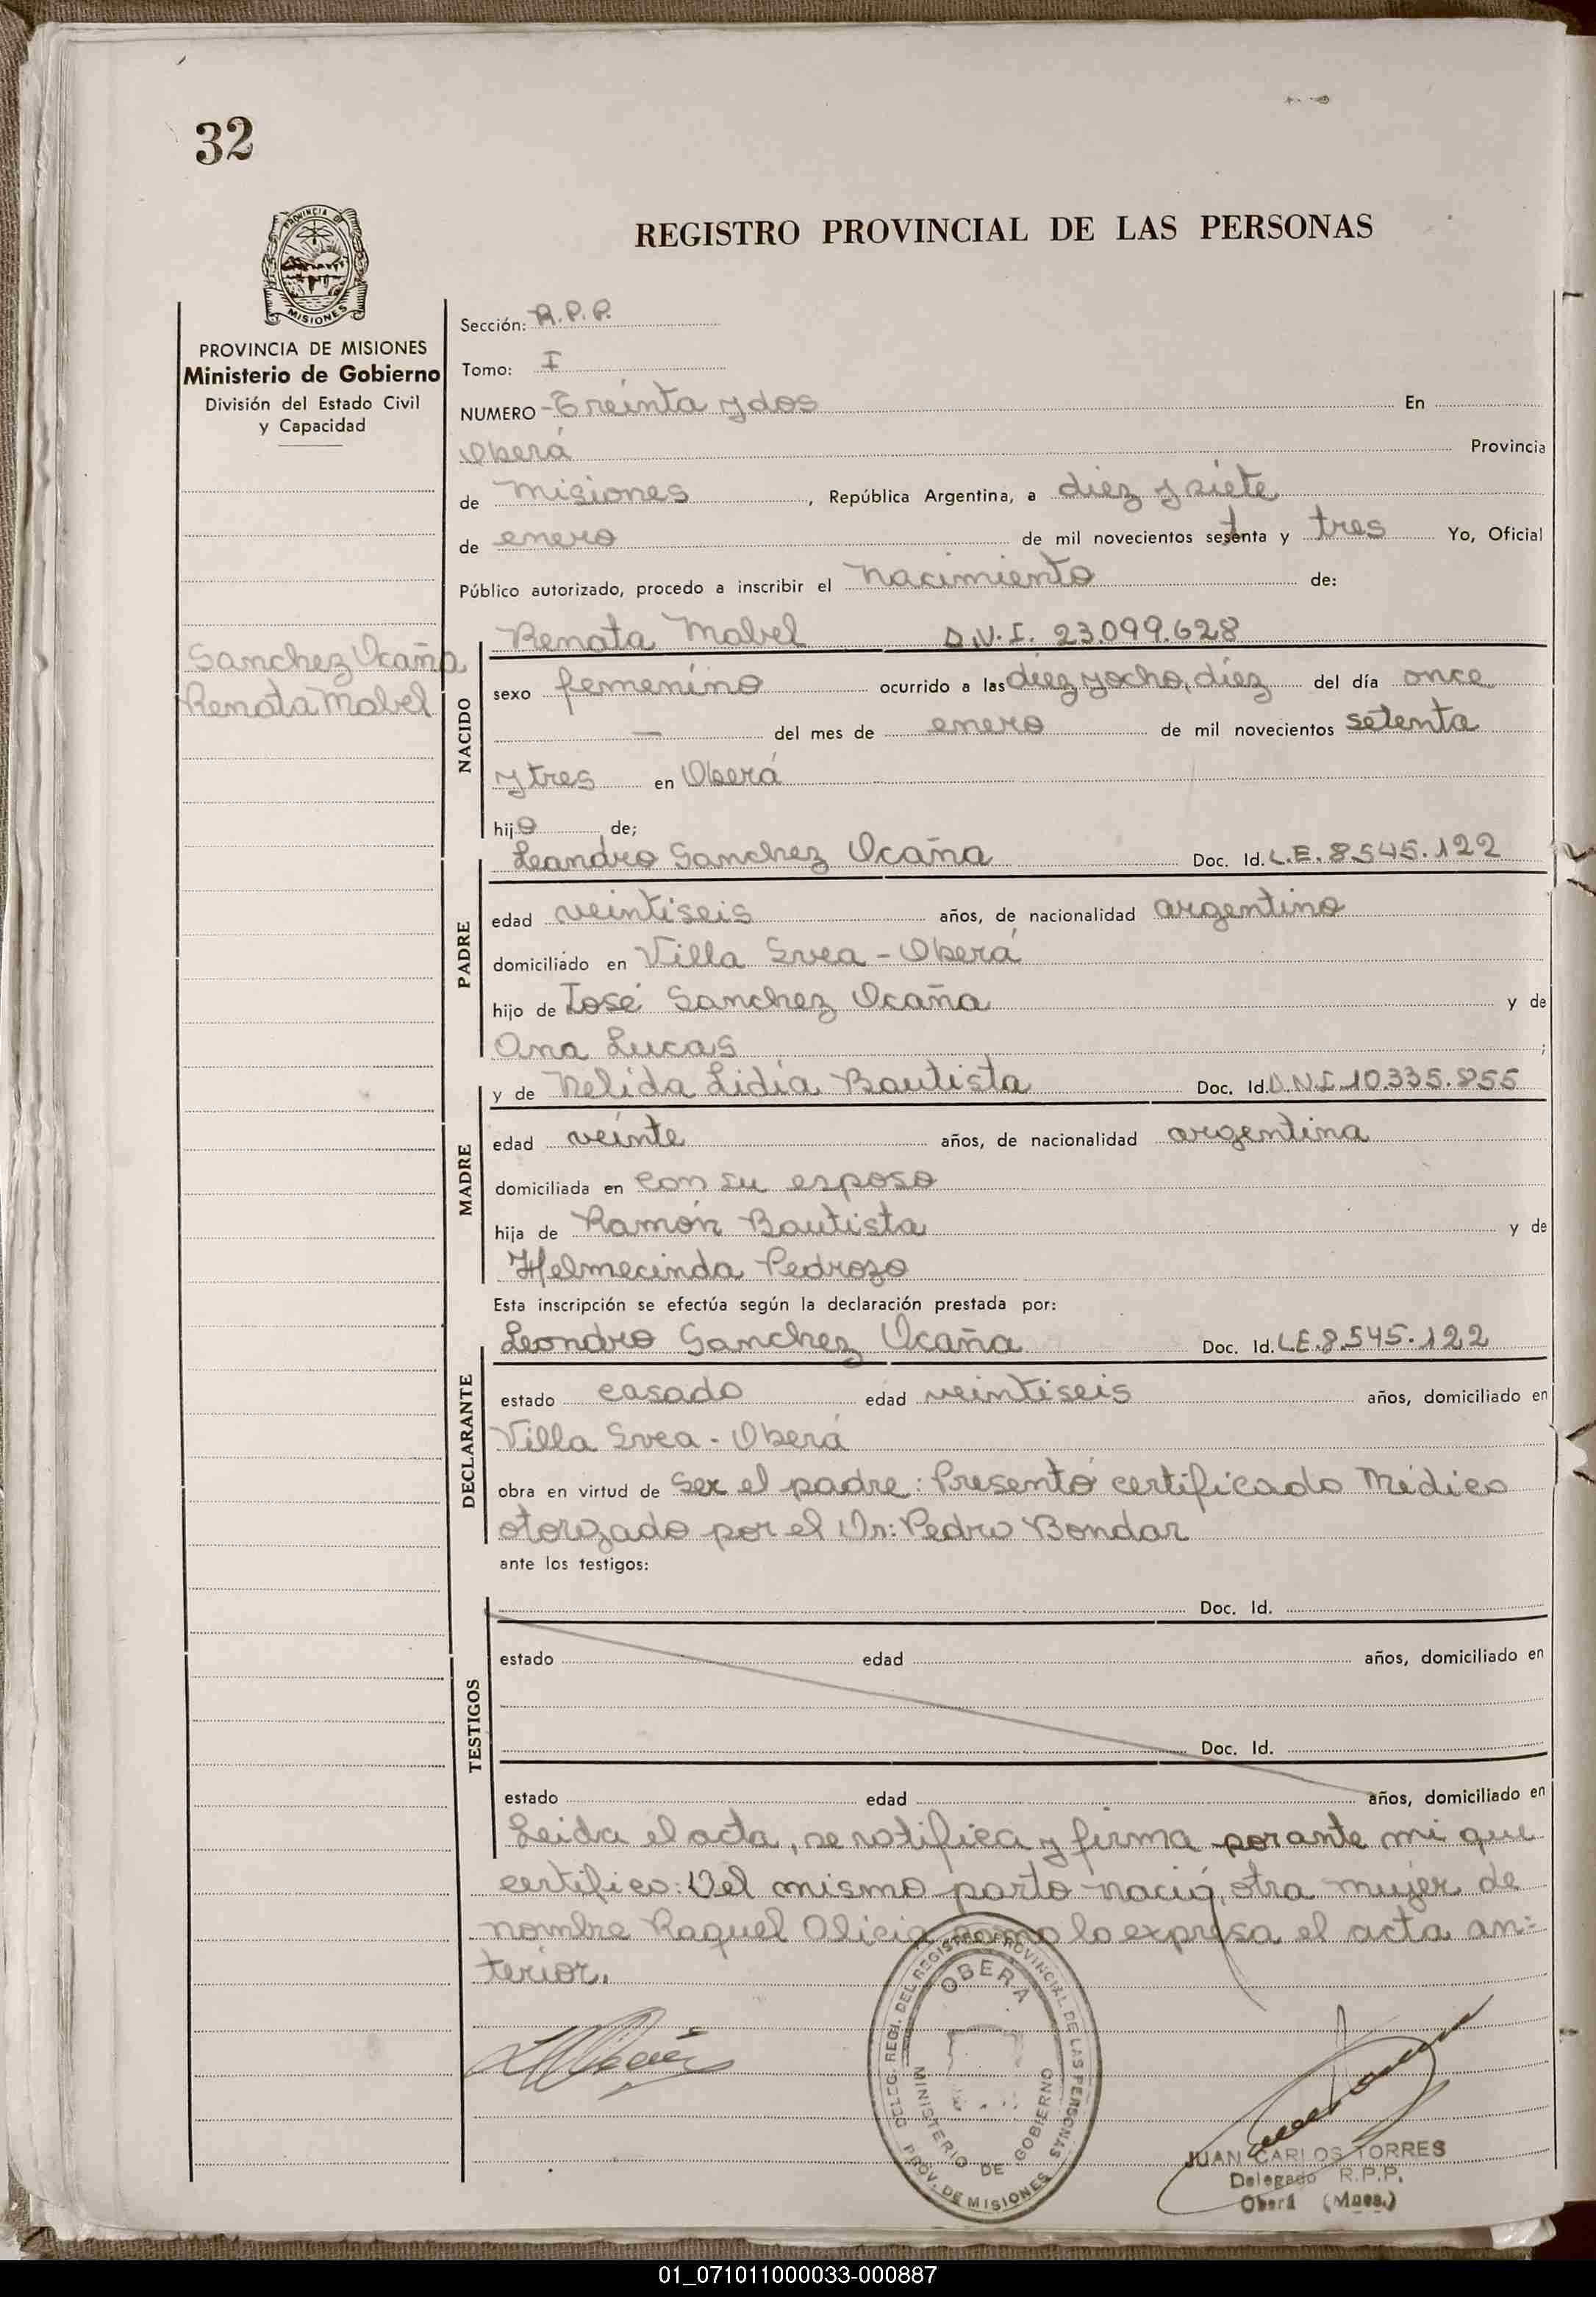 32
PROVINCIA DE
MISIONES
REGISTRO PROVINCIAL DE LAS PERSONAS
PROVINCIA DE MISIONES
Ministerio de Gobierno
División del Estado Civil
y Capacidad
Sanchez Ocaña
Renata Mabel
Sección: R.P.P.
Tomo: I
NUMERO - Treinta y dos En
Oberá Provincia
de Misiones, República Argentina, a diez y siete
de enero de mil novecientos setenta y tres Yo, Oficial
Público autorizado, procedo a inscribir el nacimiento de:
Renata Mabel D.N.I. 23.099.628
NACIDO
sexo femenino ocurrido a las diez y ocho, diez del día once
— del mes de enero de mil novecientos setenta
y tres en Oberá
hijo de;
Leandro Sanchez Ocaña Doc. Id. L.E. 8.545.122
PADRE
edad veintiseis años, de nacionalidad argentino
domiciliado en Villa Svea - Oberá
hijo de José Sanchez Ocaña y de
Ana Lucas ;
y de Nelida Lidia Bautista Doc. Id. D.N.I. 10.335.855
MADRE
edad veinte años, de nacionalidad argentina
domiciliada en con su esposo
hija de Ramón Bautista y de
Helmecinda Pedrozo
Esta inscripción se efectúa según la declaración prestada por:
Leandro Sanchez Ocaña Doc. Id. L.E. 8.545.122
DECLARANTE
estado casado edad veintiseis años, domiciliado en
Villa Svea - Oberá
obra en virtud de ser el padre: Presentó certificado Médico
otorgado por el Dr: Pedro Bondar
ante los testigos:
TESTIGOS
Doc. Id.
estado edad años, domiciliado en
Doc. Id.
estado edad años, domiciliado en
Leida el acta, se notifica y firma por ante mi que
certifico: Del mismo parto nació, otra mujer de
nombre Raquel Alicia como lo expresa el acta an=
terior.
DELEG. REGI. DEL REGISTRO PROVINCIAL DE LAS PERSONAS
OBERA
MINISTERIO DE GOBIERNO
PROV. DE MISIONES
JUAN CARLOS TORRES
Delegado R.P.P.
Oberá (Mnes.)
01_071011000033-000887